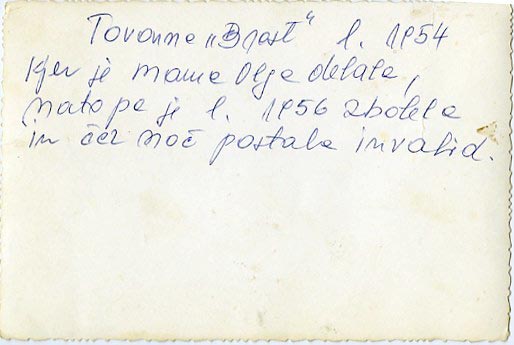 Tovarna „Brest“ l. 1954
Kjer je mama Olga delala,
nato pa je l. 1956 zbolela
in čez noč postala invalid.